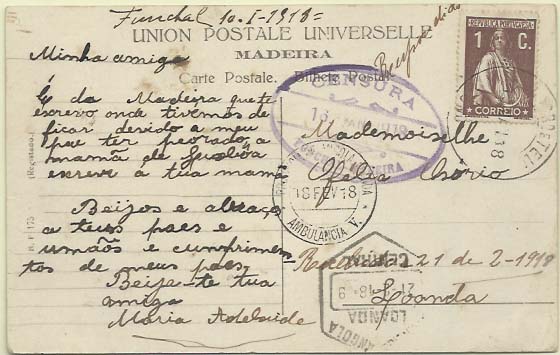 Funchal 10-I-1918=
UNION POSTALE UNIVERSELLE
MADEIRA
Carte Postale. Bilhete Postal
Minha amiga
É da Madeira que te
escrevo onde tivemos de
ficar devido a meu
pae ter peorado, a
mamã de
escreve á tua mamã
Beijos e abraços
a teus paes e
irmãos e cumprimen
tos de meus paes
Beija-te tua
amiga
Maria Adelaide
(Registado)
REPUBLICA PORTUGUESA
1 C.
CORREIO
CENSURA
MADEIRA
Mademoiselhe
Ofelia
18 FEV 18
AMBULANCIA V.
21 de 2-1918
Loanda
CENTRAL
21-2-18-9
LOANDA
ANGOLA